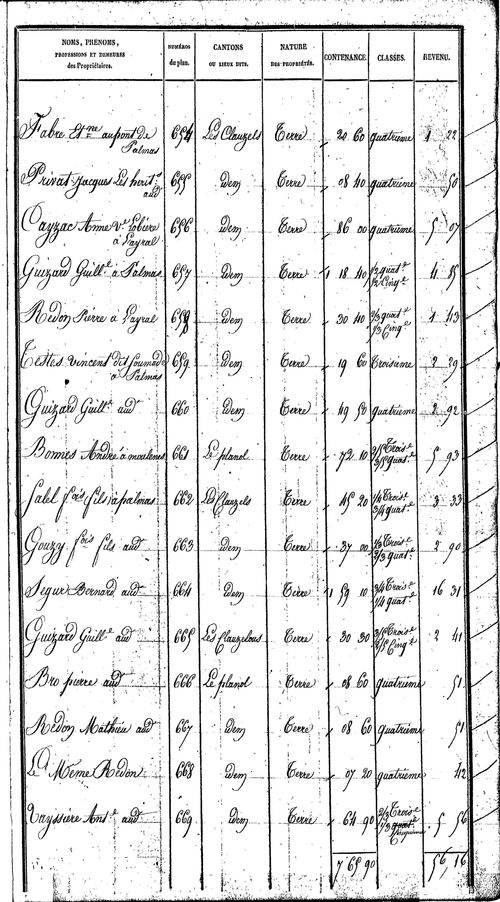 NOMS, PRÉNOMS, PROFESSIONS ET DEMEURES des Propriétaires. NUMÉROS du plan. CANTONS OU LIEUX DITS. NATURE DES PROPRIÉTÉS. CONTENANCE. CLASSES. REVENU.
Fabre Et.ne au pont de Palmas 654 Les Clauzels Terre 20 60 quatrieme 1 22
Privat Jacques Les herit.s aud 655 idem Terre 08 40 quatrieme 50
Cayzac Anne V.e à Layral 656 idem Terre 86 00 quatrieme 5 07
Guizard Guill.e à Palmas 657 idem Terre 1 18 40 1/2 quat.e 1/2 Cinq.e 4 95
Redon Pierre à Layral 658 idem Terre 30 40 2/3 quat.e 1/3 Cinq.e 1 43
Testes vincent dit à Palmas 659 idem Terre 19 60 Troisieme 2 29
Guizard Guill.e aud 660 idem Terre 49 50 quatrieme 2 92
Bonnes André à 661 Le planol Terre 72 10 2/5 Trois.e 3/5 quat.e 5 93
Salel f.ois (fils) à palmas 662 Les Clauzels Terre 45 20 1/4 Trois.e 3/4 quat.e 3 33
Gouzy f.ois fils aud 663 idem Terre 37 00 1/3 Trois.e 2/3 quat.e 2 90
Segur Bernard aud 664 idem Terre 1 59 10 3/4 Trois.e 1/4 quat.e 16 31
Guizard Guill.e aud 665 Les Clauzelous Terre 30 30 3/5 Trois.e 2/5 Cinq.e 2 41
Bro pierre aud 666 Le planol Terre 08 60 quatrieme 51
Redon Mathieu aud 667 idem Terre 08 60 quatrieme 51
Le Même Redon 668 idem Terre 07 20 quatrieme 42
Vayssiere Ant.e aud 669 idem Terre 64 90 2/3 Trois.e 1/3 5 56
7 65 90 56,16